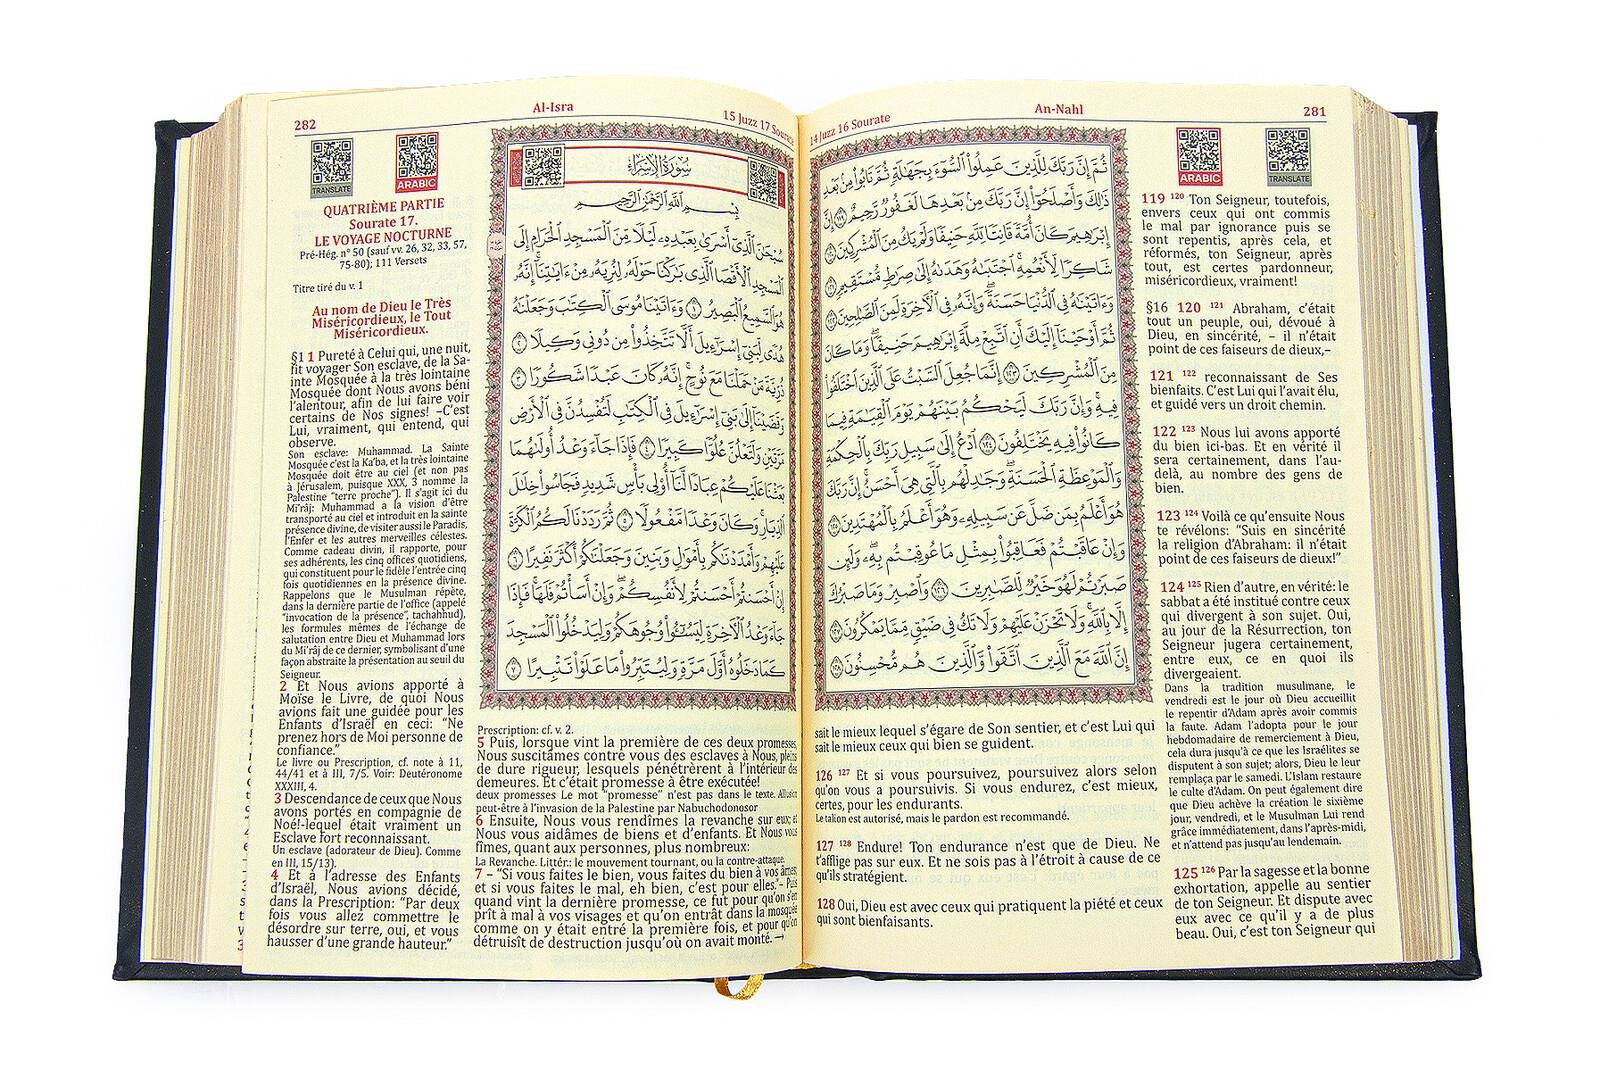 14 Juzz 16 Sourate
An-Nahl
281
ARABIC
TRANSLATE
ثُمَّ إِنَّ رَبَّكَ لِلَّذِينَ عَمِلُوا۟ ٱلسُّوٓءَ بِجَهَٰلَةٍ ثُمَّ تَابُوا۟ مِنۢ بَعْدِ
ذَٰلِكَ وَأَصْلَحُوٓا۟ إِنَّ رَبَّكَ مِنۢ بَعْدِهَا لَغَفُورٌ رَّحِيمٌ ١١٩ إِنَّ
إِبْرَٰهِيمَ كَانَ أُمَّةً قَانِتًا لِّلَّهِ حَنِيفًا وَلَمْ يَكُ مِنَ ٱلْمُشْرِكِينَ ١٢٠
شَاكِرًا لِّأَنْعُمِهِ ٱجْتَبَىٰهُ وَهَدَىٰهُ إِلَىٰ صِرَٰطٍ مُّسْتَقِيمٍ ١٢١
وَءَاتَيْنَٰهُ فِى ٱلدُّنْيَا حَسَنَةً وَإِنَّهُۥ فِى ٱلْءَاخِرَةِ لَمِنَ ٱلصَّٰلِحِينَ ١٢٢
ثُمَّ أَوْحَيْنَآ إِلَيْكَ أَنِ ٱتَّبِعْ مِلَّةَ إِبْرَٰهِيمَ حَنِيفًا وَمَا كَانَ
مِنَ ٱلْمُشْرِكِينَ ١٢٣ إِنَّمَا جُعِلَ ٱلسَّبْتُ عَلَى ٱلَّذِينَ ٱخْتَلَفُوا۟
فِيهِ وَإِنَّ رَبَّكَ لَيَحْكُمُ بَيْنَهُمْ يَوْمَ ٱلْقِيَٰمَةِ فِيمَا
كَانُوا۟ فِيهِ يَخْتَلِفُونَ ١٢٤ ٱدْعُ إِلَىٰ سَبِيلِ رَبِّكَ بِٱلْحِكْمَةِ
وَٱلْمَوْعِظَةِ ٱلْحَسَنَةِ وَجَٰدِلْهُم بِٱلَّتِى هِىَ أَحْسَنُ إِنَّ رَبَّكَ
هُوَ أَعْلَمُ بِمَن ضَلَّ عَن سَبِيلِهِۦ وَهُوَ أَعْلَمُ بِٱلْمُهْتَدِينَ ١٢٥
وَإِنْ عَاقَبْتُمْ فَعَاقِبُوا۟ بِمِثْلِ مَا عُوقِبْتُم بِهِۦ وَلَئِن
صَبَرْتُمْ لَهُوَ خَيْرٌ لِّلصَّٰبِرِينَ ١٢٦ وَٱصْبِرْ وَمَا صَبْرُكَ
إِلَّا بِٱللَّهِ وَلَا تَحْزَنْ عَلَيْهِمْ وَلَا تَكُ فِى ضَيْقٍ مِّمَّا يَمْكُرُونَ ١٢٧
إِنَّ ٱللَّهَ مَعَ ٱلَّذِينَ ٱتَّقَوا۟ وَّٱلَّذِينَ هُم مُّحْسِنُونَ ١٢٨
119 120 Ton Seigneur, toutefois,
envers ceux qui ont commis
le mal par ignorance puis se
sont repentis, après cela, et
réformés, ton Seigneur, après
tout, est certes pardonneur,
miséricordieux, vraiment!
§16 120 121 Abraham, c’était
tout un peuple, oui, dévoué à
Dieu, en sincérité, – il n’était
point de ces faiseurs de dieux,–
121 122 reconnaissant de Ses
bienfaits. C’est Lui qui l’avait élu,
et guidé vers un droit chemin.
122 123 Nous lui avons apporté
du bien ici-bas. Et en vérité il
sera certainement, dans l’au-
delà, au nombre des gens de
bien.
123 124 Voilà ce qu’ensuite Nous
te révélons: “Suis en sincérité
la religion d’Abraham: il n’était
point de ces faiseurs de dieux!”
124 125 Rien d’autre, en vérité: le
sabbat a été institué contre ceux
qui divergent à son sujet. Oui,
au jour de la Résurrection, ton
Seigneur jugera certainement,
entre eux, ce en quoi ils
divergeaient.
Dans la tradition musulmane, le
vendredi est le jour où Dieu accueillit
le repentir d’Adam après avoir commis
la faute. Adam l’adopta pour le jour
hebdomadaire de remerciement à Dieu,
cela dura jusqu’à ce que les Israélites se
disputent à son sujet; alors, Dieu le leur
remplaça par le samedi. L’Islam restaure
le culte d’Adam. On peut également dire
que Dieu achève la création le sixième
jour, vendredi, et le Musulman Lui rend
grâce immédiatement, dans l’après-midi,
et n’attend pas jusqu’au lendemain.
125 126 Par la sagesse et la bonne
exhortation, appelle au sentier
de ton Seigneur. Et dispute avec
eux avec ce qu’il y a de plus
beau. Oui, c’est ton Seigneur qui
sait le mieux lequel s’égare de Son sentier, et c’est Lui qui
sait le mieux ceux qui bien se guident.
126 127 Et si vous poursuivez, poursuivez alors selon
qu’on vous a poursuivis. Si vous endurez, c’est mieux,
certes, pour les endurants.
Le talion est autorisé, mais le pardon est recommandé.
127 128 Endure! Ton endurance n’est que de Dieu. Ne
t’afflige pas sur eux. Et ne sois pas à l’étroit à cause de ce
qu’ils stratégient.
128 Oui, Dieu est avec ceux qui pratiquent la piété et ceux
qui sont bienfaisants.
282
Al-Isra
15 Juzz 17 Sourate
TRANSLATE
ARABIC
QUATRIÈME PARTIE
Sourate 17.
LE VOYAGE NOCTURNE
Pré-Hég. n° 50 (sauf vv. 26, 32, 33, 57,
75-80); 111 Versets
Titre tiré du v. 1
Au nom de Dieu le Très
Miséricordieux, le Tout
Miséricordieux.
§1 1 Pureté à Celui qui, une nuit,
fit voyager Son esclave, de la Sa-
inte Mosquée à la très lointaine
Mosquée dont Nous avons béni
l’alentour, afin de lui faire voir
certains de Nos signes! –C’est
Lui, vraiment, qui entend, qui
observe.
Son esclave: Muhammad. La Sainte
Mosquée c’est la Ka’ba, et la très lointaine
Mosquée doit être au ciel (et non pas
à Jérusalem, puisque XXX, 3 nomme la
Palestine “terre proche”). Il s’agit ici du
Mi’râj: Muhammad a la vision d’être
transporté au ciel et introduit en la sainte
présence divine, de visiter aussi le Paradis,
l’Enfer et les autres merveilles célestes.
Comme cadeau divin, il rapporte, pour
ses adhérents, les cinq offices quotidiens,
qui constituent pour le fidèle l’entrée cinq
fois quotidiennes en la présence divine.
Rappelons que le Musulman répète,
dans la dernière partie de l’office (appelé
“invocation de la présence”, tachahhud),
les formules mêmes de l’échange de
salutation entre Dieu et Muhammad lors
du Mi’râj de ce dernier, symbolisant d’une
façon abstraite la présentation au seuil du
Seigneur.
2 Et Nous avions apporté à
Moïse le Livre, de quoi Nous
avions fait une guidée pour les
Enfants d’Israël en ceci: “Ne
prenez hors de Moi personne de
confiance.”
Le livre ou Prescription, cf. note à 11,
44/41 et à III, 7/5. Voir: Deutéronome
XXXIII, 4.
3 Descendance de ceux que Nous
avons portés en compagnie de
Noé!-lequel était vraiment un
Esclave fort reconnaissant.
Un esclave (adorateur de Dieu). Comme
en III, 15/13).
4 Et à l’adresse des Enfants
d’Israël, Nous avions décidé,
dans la Prescription: “Par deux
fois vous allez commettre le
désordre sur terre, oui, et vous
hausser d’une grande hauteur.”
سُورَةُ الإِسْرَاءِ
بِسْمِ ٱللَّهِ ٱلرَّحْمَٰنِ ٱلرَّحِيمِ
سُبْحَٰنَ ٱلَّذِىٓ أَسْرَىٰ بِعَبْدِهِۦ لَيْلًا مِّنَ ٱلْمَسْجِدِ ٱلْحَرَامِ إِلَى
ٱلْمَسْجِدِ ٱلْأَقْصَا ٱلَّذِى بَٰرَكْنَا حَوْلَهُۥ لِنُرِيَهُۥ مِنْ ءَايَٰتِنَآ إِنَّهُۥ
هُوَ ٱلسَّمِيعُ ٱلْبَصِيرُ ١ وَءَاتَيْنَا مُوسَى ٱلْكِتَٰبَ وَجَعَلْنَٰهُ
هُدًى لِّبَنِىٓ إِسْرَٰٓءِيلَ أَلَّا تَتَّخِذُوا۟ مِن دُونِى وَكِيلًا ٢
ذُرِّيَّةَ مَنْ حَمَلْنَا مَعَ نُوحٍ إِنَّهُۥ كَانَ عَبْدًا شَكُورًا ٣
وَقَضَيْنَآ إِلَىٰ بَنِىٓ إِسْرَٰٓءِيلَ فِى ٱلْكِتَٰبِ لَتُفْسِدُنَّ فِى ٱلْأَرْضِ
مَرَّتَيْنِ وَلَتَعْلُنَّ عُلُوًّا كَبِيرًا ٤ فَإِذَا جَآءَ وَعْدُ أُولَىٰهُمَا
بَعَثْنَا عَلَيْكُمْ عِبَادًا لَّنَآ أُو۟لِى بَأْسٍ شَدِيدٍ فَجَاسُوا۟ خِلَٰلَ
ٱلدِّيَارِ وَكَانَ وَعْدًا مَّفْعُولًا ٥ ثُمَّ رَدَدْنَا لَكُمُ ٱلْكَرَّةَ
عَلَيْهِمْ وَأَمْدَدْنَٰكُم بِأَمْوَٰلٍ وَبَنِينَ وَجَعَلْنَٰكُمْ أَكْثَرَ نَفِيرًا ٦
إِنْ أَحْسَنتُمْ أَحْسَنتُمْ لِأَنفُسِكُمْ وَإِنْ أَسَأْتُمْ فَلَهَا فَإِذَا
جَآءَ وَعْدُ ٱلْءَاخِرَةِ لِيَسُۥٓـُٔوا۟ وُجُوهَكُمْ وَلِيَدْخُلُوا۟ ٱلْمَسْجِدَ
كَمَا دَخَلُوهُ أَوَّلَ مَرَّةٍ وَلِيُتَبِّرُوا۟ مَا عَلَوْا۟ تَتْبِيرًا ٧
Prescription: cf. v. 2.
5 Puis, lorsque vint la première de ces deux promesses,
Nous suscitâmes contre vous des esclaves à Nous, pleins
de dure rigueur, lesquels pénétrèrent à l’intérieur des
demeures. Et c’était promesse à être exécutée!
deux promesses Le mot “promesse” n’est pas dans le texte. Allusion
peut-être à l’invasion de la Palestine par Nabuchodonosor
6 Ensuite, Nous vous rendîmes la revanche sur eux; et
Nous vous aidâmes de biens et d’enfants. Et Nous vous
fîmes, quant aux personnes, plus nombreux:
La Revanche. Littér.: le mouvement tournant, ou la contre-attaque.
7 – “Si vous faites le bien, vous faites du bien à vos âmes;
et si vous faites le mal, eh bien, c’est pour elles.”– Puis
quand vint la dernière promesse, ce fut pour qu’on s’en
prît à mal à vos visages et qu’on entrât dans la mosquée
comme on y était entré la première fois, et pour qu’on
détruisît de destruction jusqu’où on avait monté. →